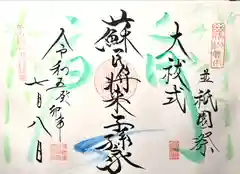 並祇園祭
大祓式
蘇民将来子孫
令和五癸卯年
七月八日